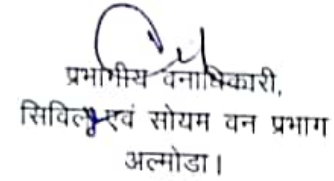 प्रभागीय वनाधिकारी,
सिविल एवं सोयम वन प्रभाग
अल्मोडा।